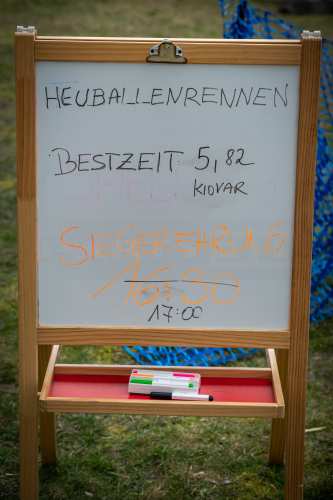 HEUBALLENRENNEN
BESTZEIT 5,82
KIOVAR
SIEGEREHRUNG
16:30
17:00